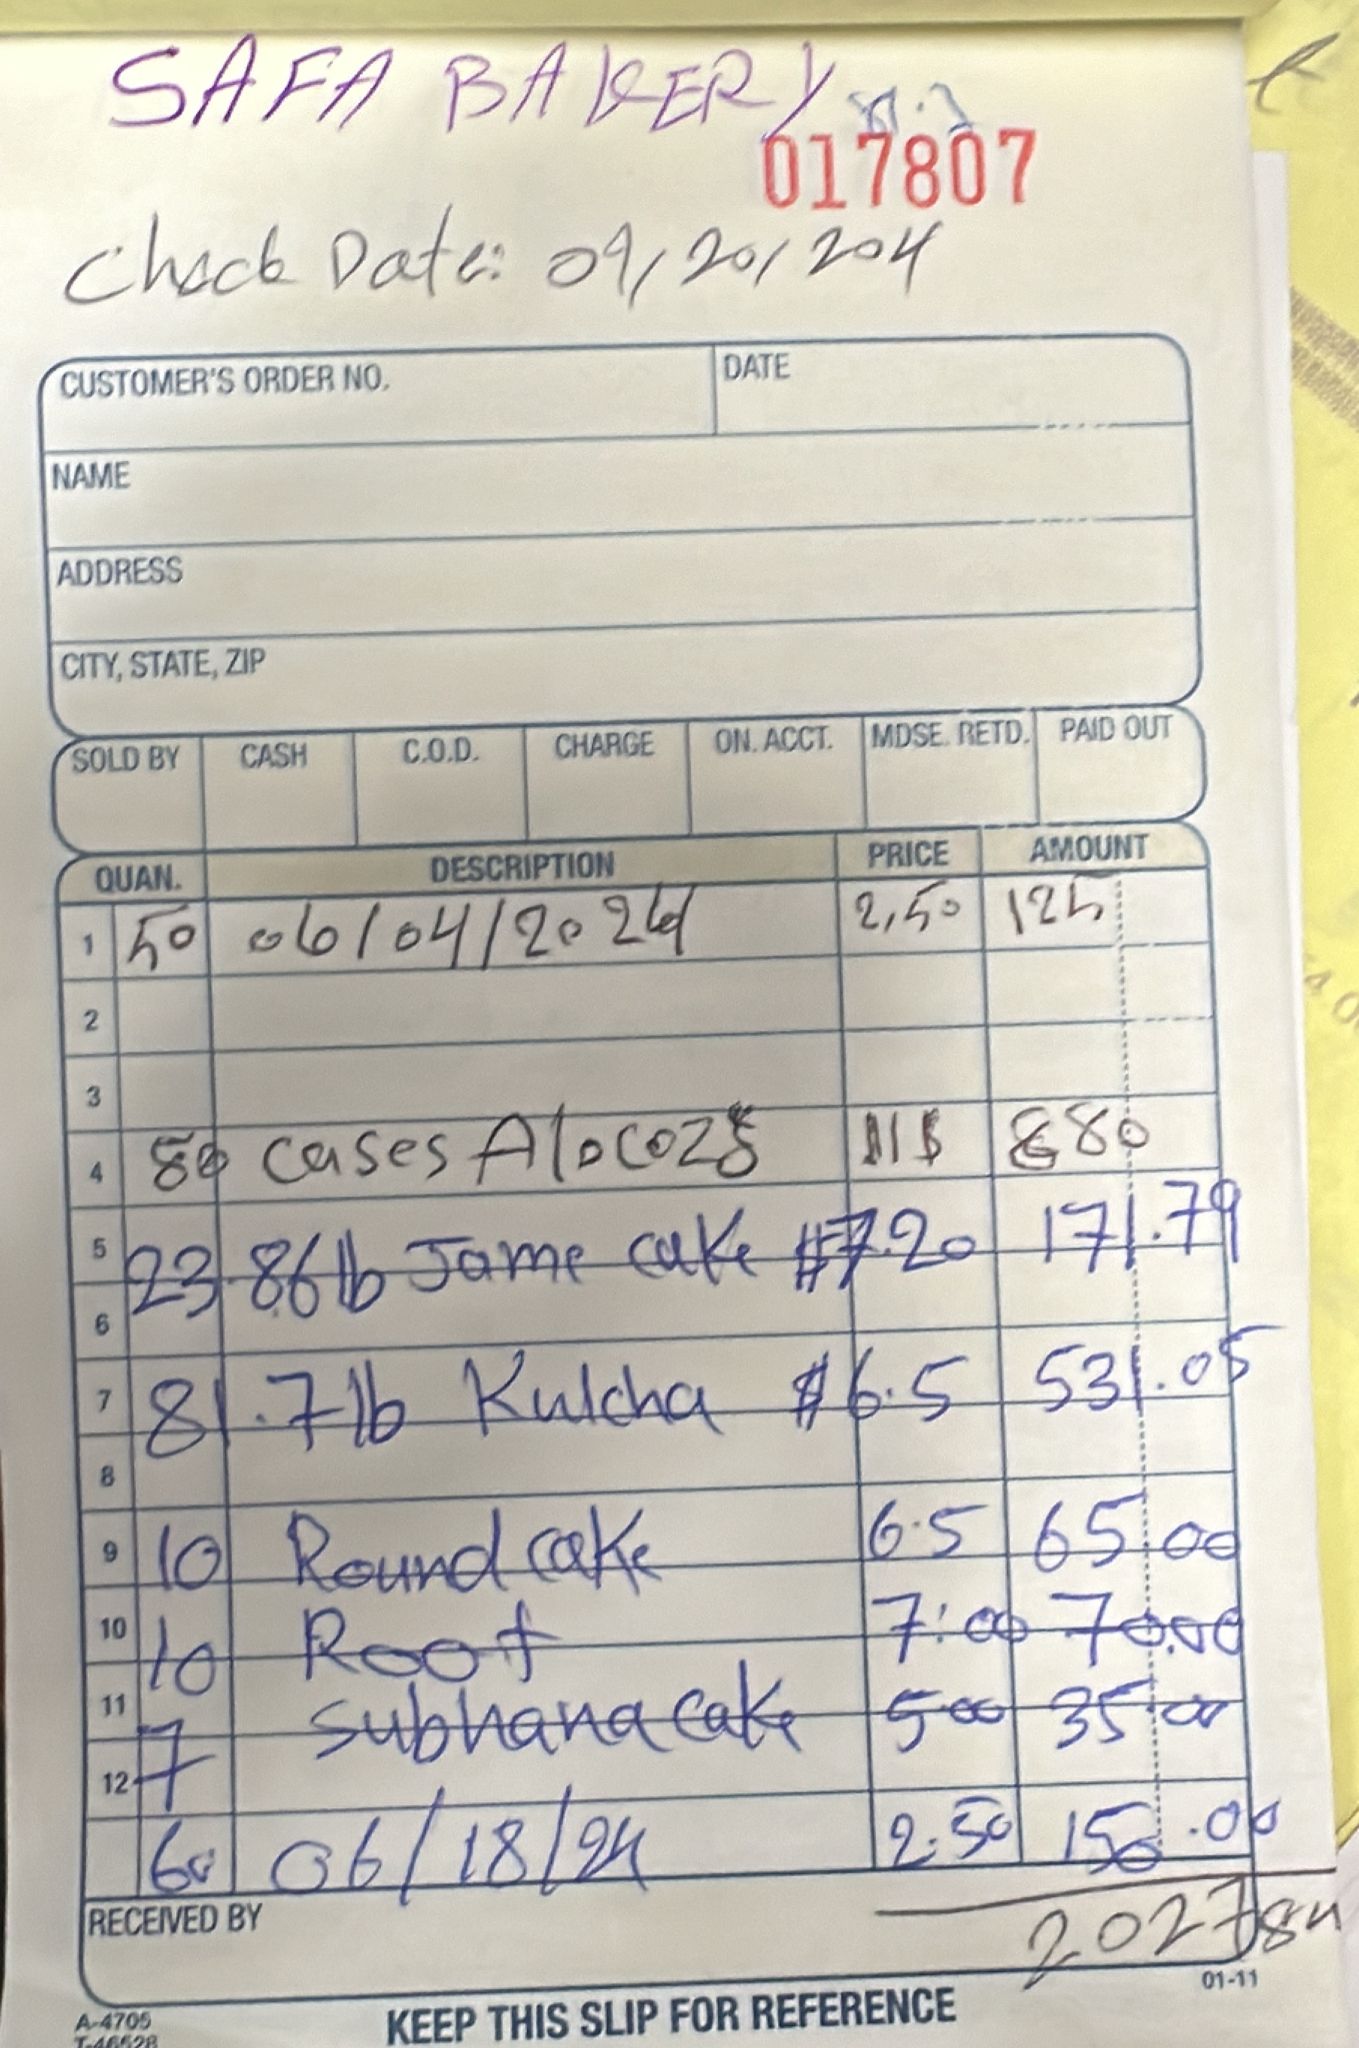 SAFA BAKERY
017807
Check Date: 09/20/204
CUSTOMER'S ORDER NO. DATE
NAME
ADDRESS
CITY, STATE, ZIP
SOLD BY CASH C.O.D. CHARGE ON. ACCT. MDSE. RETD. PAID OUT
QUAN. DESCRIPTION PRICE AMOUNT
1 50 06/04/2024 2,50 125
2
3
4 80 cases Alocozs 11$ 880
5 23.86lb Jame cake $7.20 171.79
6
7 81.7lb Kulcha $6.5 531.05
8
9 10 Round cake 6.5 65.00
10 10 Root 7.00 70.00
11 Subhana cake 5.00 35.00
12 7
60 06/18/24 2.50 150.00
RECEIVED BY 2027 84
01-11
A-4705
T-46528
KEEP THIS SLIP FOR REFERENCE